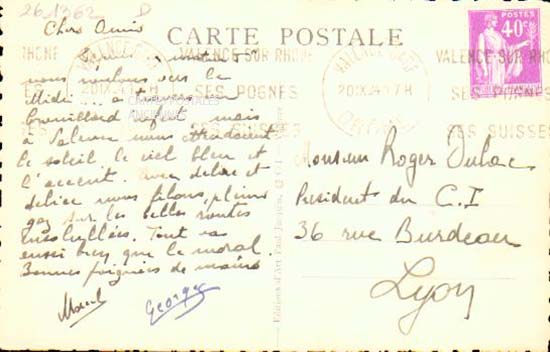 261362 D
Chers Amis
CARTE POSTALE
POSTES
40c
VALENCE GARE
VALENCE SUR RHONE
SES POGNES
SES SUISSES
VALENCE GARE
20 IX 34 17H
DROME
VALENCE SUR RHONE
SES POGNES
SES SUISSES
nous roulons vers le
Midi... a travers un
brouillard mais
à Valence nous attendaient
le soleil le ciel bleu et
l'accent. Avec délice et
délice nous filons, pleins
gaz sur les belles routes
ensoleillées. Tout va
aussi bien que le moral.
Bonnes poignées de mains
Marcel
Georges
Monsieur Roger Dulac
President du C.I
36 rue Burdeau
Lyon
Editions d'Art